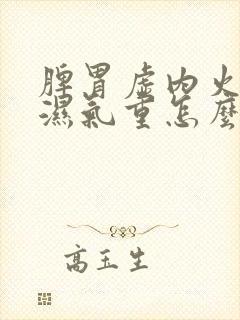 脾胃虛內火
濕氣重怎麼
高玉生